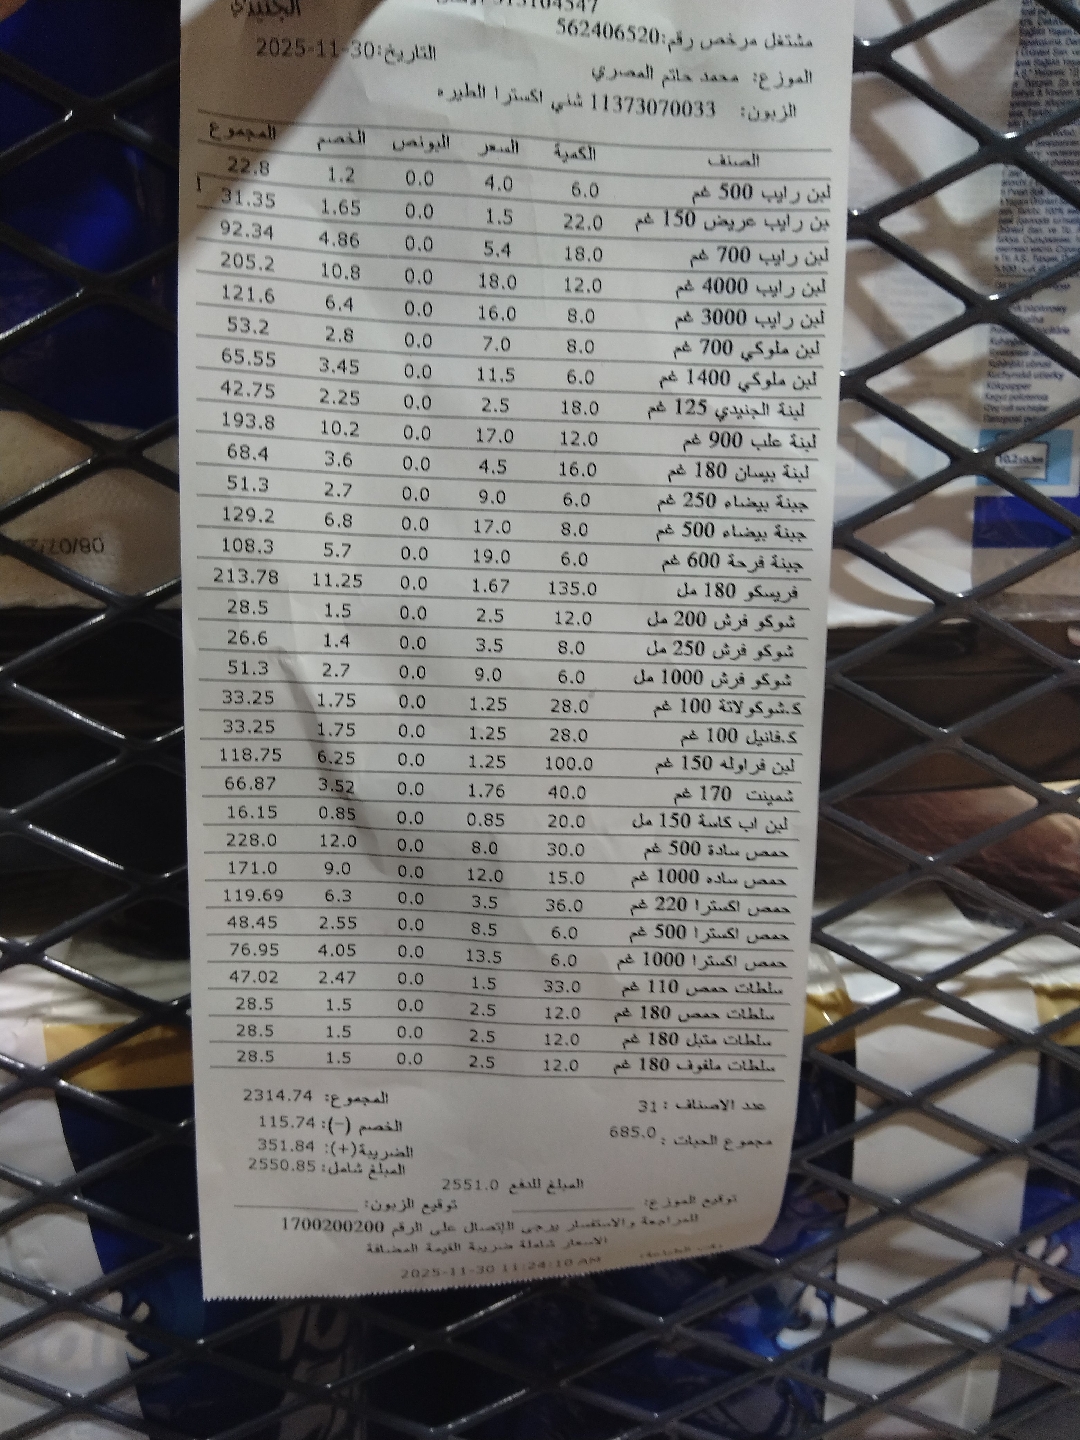 الجنيدي
مشتغل مرخص رقم:562406520
التاريخ:30-11-2025
الموزع: محمد حاتم المصري
الزبون: 11373070033 شني اكسترا الطيره
الصنف الكمية السعر البونص الخصم المجموع
لبن رايب 500 غم 6.0 4.0 0.0 1.2 22.8
بن رايب عريض 150 غم 22.0 1.5 0.0 1.65 31.35
لبن رايب 700 غم 18.0 5.4 0.0 4.86 92.34
لبن رايب 4000 غم 12.0 18.0 0.0 10.8 205.2
لبن رايب 3000 غم 8.0 16.0 0.0 6.4 121.6
لبن ملوكي 700 غم 8.0 7.0 0.0 2.8 53.2
لبن ملوكي 1400 غم 6.0 11.5 0.0 3.45 65.55
لبنة الجنيدي 125 غم 18.0 2.5 0.0 2.25 42.75
لبنة علب 900 غم 12.0 17.0 0.0 10.2 193.8
لبنة بيسان 180 غم 16.0 4.5 0.0 3.6 68.4
جبنة بيضاء 250 غم 6.0 9.0 0.0 2.7 51.3
جبنة بيضاء 500 غم 8.0 17.0 0.0 6.8 129.2
جبنة فرحة 600 غم 6.0 19.0 0.0 5.7 108.3
فريسكو 180 مل 135.0 1.67 0.0 11.25 213.78
شوكو فرش 200 مل 12.0 2.5 0.0 1.5 28.5
شوكو فرش 250 مل 8.0 3.5 0.0 1.4 26.6
شوكو فرش 1000 مل 6.0 9.0 0.0 2.7 51.3
ك.شوكولاتة 100 غم 28.0 1.25 0.0 1.75 33.25
ك.فانيل 100 غم 28.0 1.25 0.0 1.75 33.25
لبن فراوله 150 غم 100.0 1.25 0.0 6.25 118.75
شمينت 170 غم 40.0 1.76 0.0 3.52 66.87
لبن اب كاسة 150 مل 20.0 0.85 0.0 0.85 16.15
حمص سادة 500 غم 30.0 8.0 0.0 12.0 228.0
حمص ساده 1000 غم 15.0 12.0 0.0 9.0 171.0
حمص اكسترا 220 غم 36.0 3.5 0.0 6.3 119.69
حمص اكسترا 500 غم 6.0 8.5 0.0 2.55 48.45
حمص اكسترا 1000 غم 6.0 13.5 0.0 4.05 76.95
سلطات حمص 110 غم 33.0 1.5 0.0 2.47 47.02
سلطات حمص 180 غم 12.0 2.5 0.0 1.5 28.5
سلطات متبل 180 غم 12.0 2.5 0.0 1.5 28.5
سلطات ملفوف 180 غم 12.0 2.5 0.0 1.5 28.5
عدد الاصناف : 31
المجموع: 2314.74
مجموع الحبات : 685.0
الخصم (-): 115.74
الضريبة(+): 351.84
المبلغ شامل: 2550.85
المبلغ للدفع 2551.0
توقيع الموزع:
توقيع الزبون:
للمراجعة والاستفسار يرجى الاتصال على الرقم 1700200200
الاسعار شاملة ضريبة القيمة المضافة
2025-11-30 11:24:10 AM